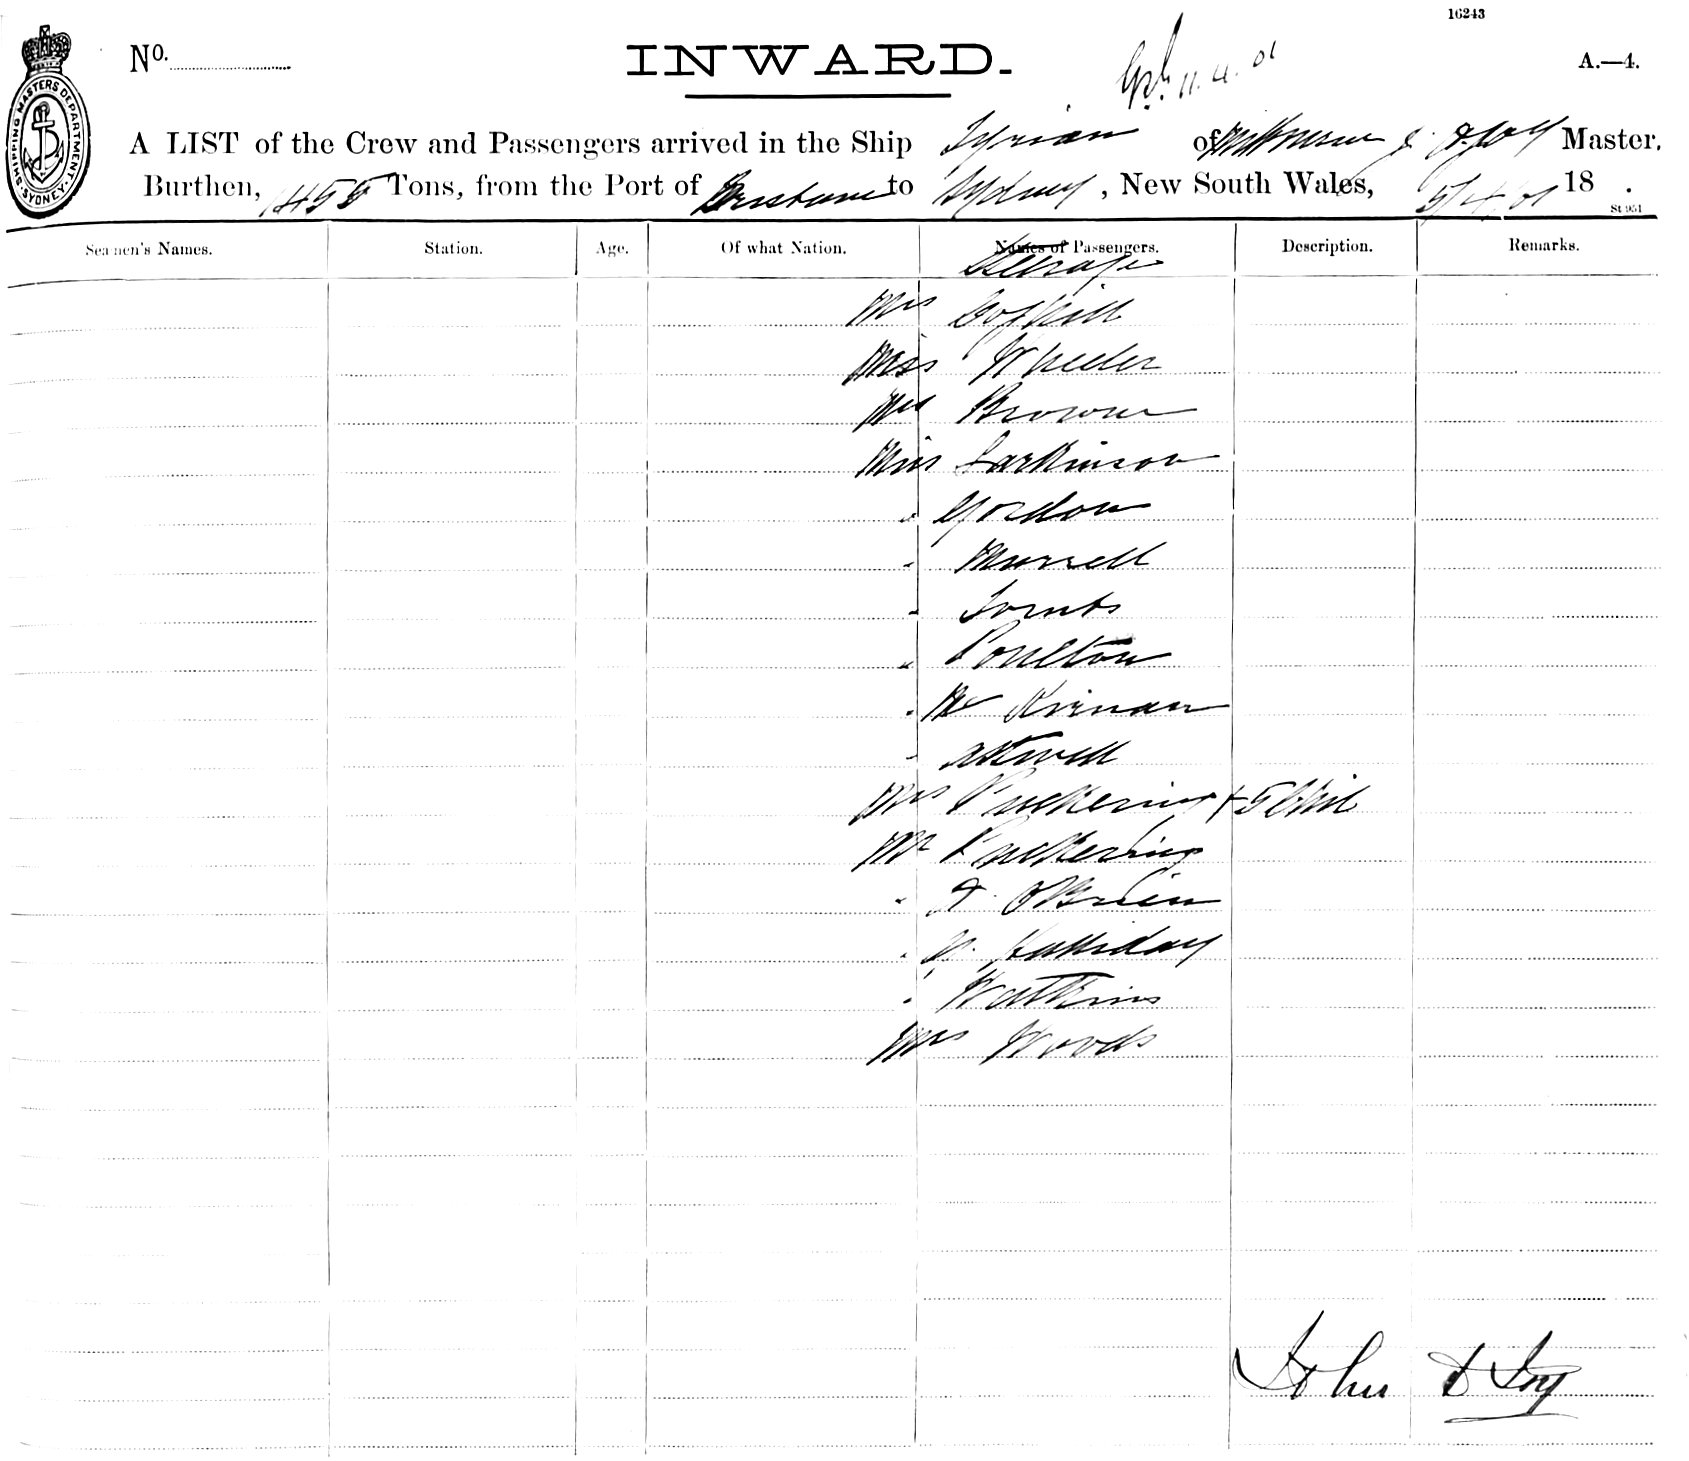 16243
No.
INWARD.
11.4.01
A.—4.
SHIPPING MASTERS DEPARTMENT
SYDNEY
A LIST of the Crew and Passengers arrived in the Ship Tyrian of Melbourne J. D. Joy Master,
Burthen, 1455 Tons, from the Port of Brisbane to Sydney, New South Wales, 5/4/01 18 .
St 951
Seamen's Names. Station. Age. Of what Nation. Names of Passengers. Description. Remarks.
Steerage
Mrs
Miss Wheeler
Mrs Browne
Miss Parkinson
" Gordon
" Murrell
"
" Poulton
" Mc Kirnan
" Attwell
Mrs Puckering + 5 Chil
Mr Puckering
" O'Brien
" Halliday
" Watkins
Mrs Woods
John D Joy